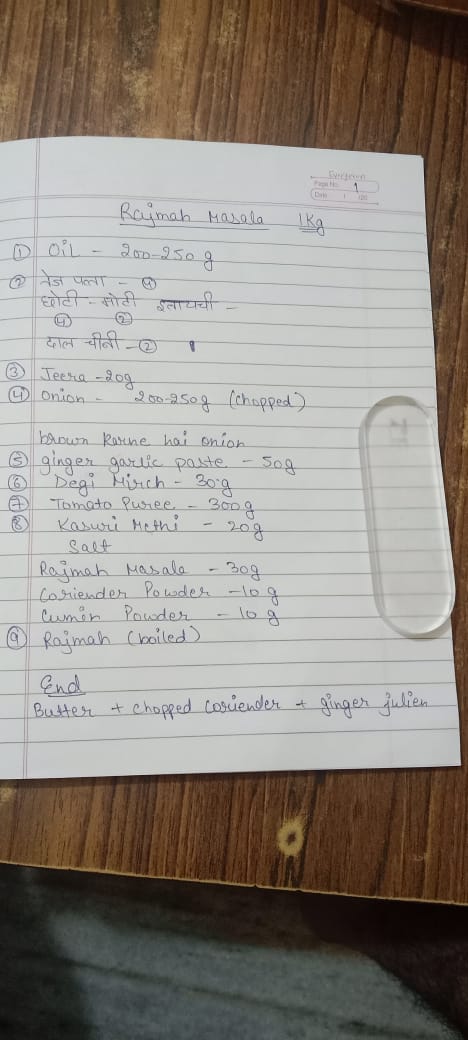 Evergreen
Page No. 1
Date / /20
Rajmah Masala 1Kg
① Oil - 200-250g
② तेज पत्ता - ④
छोटी - मोटी इलायची -
④ ②
दाल चीनी - ②
③ Jeera - 20g
④ Onion - 200-250g (chopped)
brown karne hai onion
⑤ ginger garlic paste - 50g
⑥ Degi Mirch - 30g
⑦ Tomato Puree - 300g
⑧ Kasuri Methi - 20g
Salt
Rajmah Masala - 30g
Coriender Powder - 10 g
Cumin Powder - 10 g
⑨ Rajmah (boiled)
End
Butter + chopped coriender + ginger julien